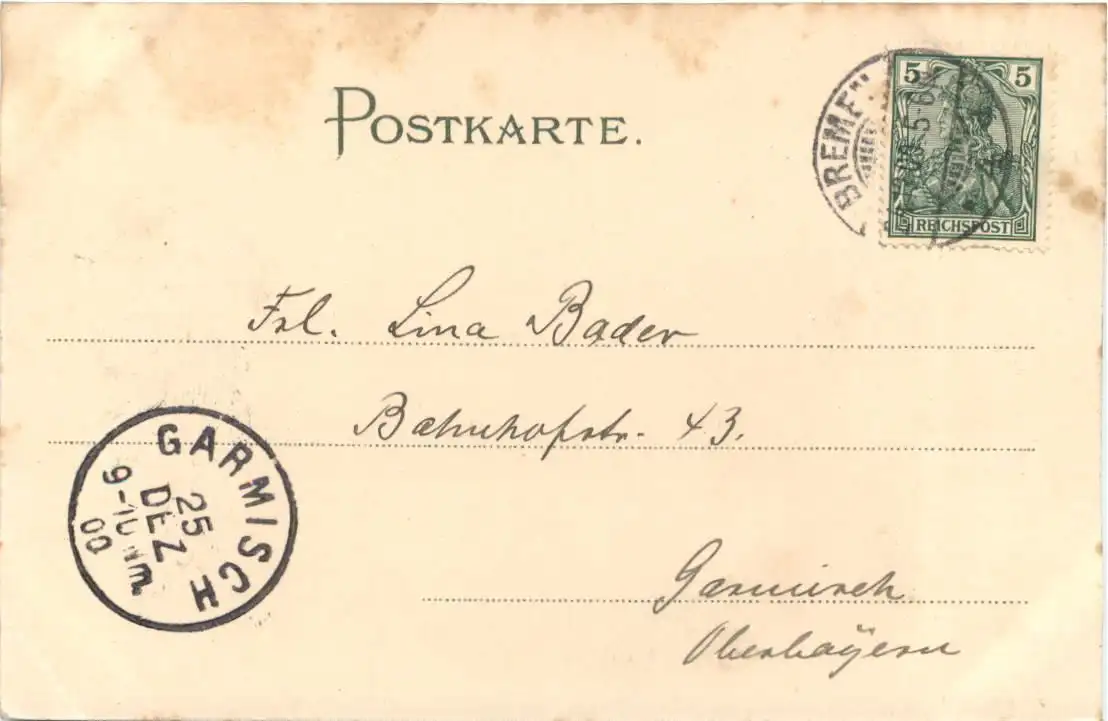 POSTKARTE.
5 5
BREMEN
5-6
REICHSPOST
Frl. Lina Bader
Bahnhofstr. 43.
GARMISCH
25
DEZ
9-10 Nm.
00
Garmisch
Oberbayern